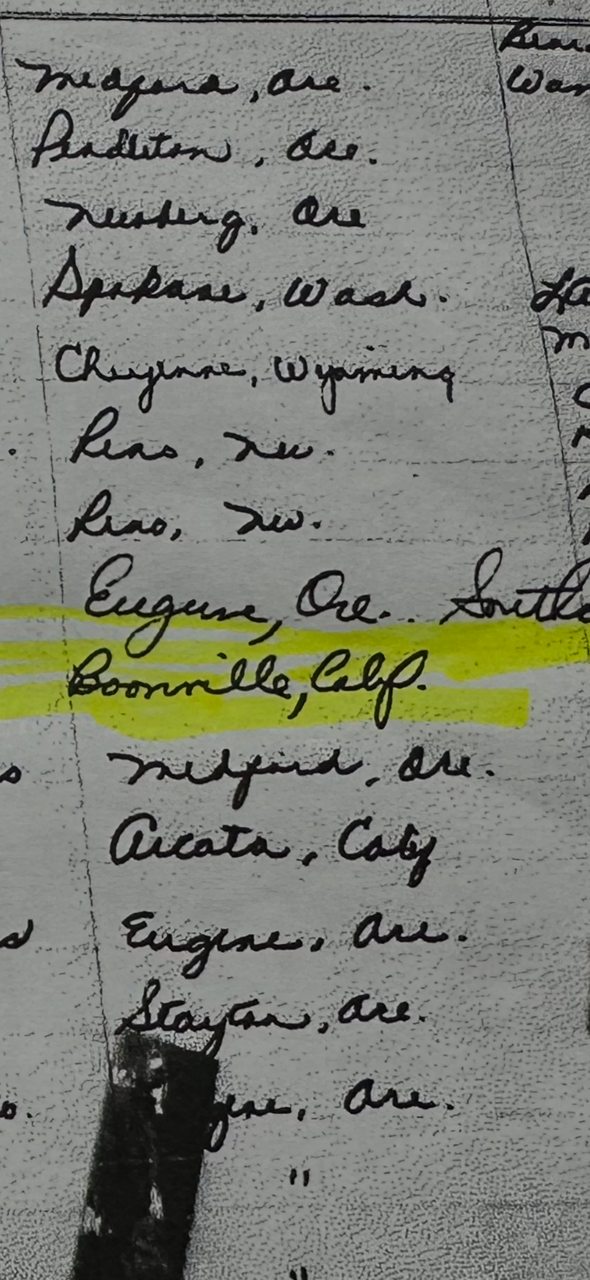 Medford, Ore.
Pendleton, Ore.
Newberg, Ore
Spokane, Wash.
Cheyenne, Wyoming
Reno, Nev.
Reno, Nev.
Eugene, Ore..
Boonville, Calif.
Medford, Ore.
Arcata, Calif
Eugene, Ore.
Stayton, Ore.
gene, Ore.
"
"